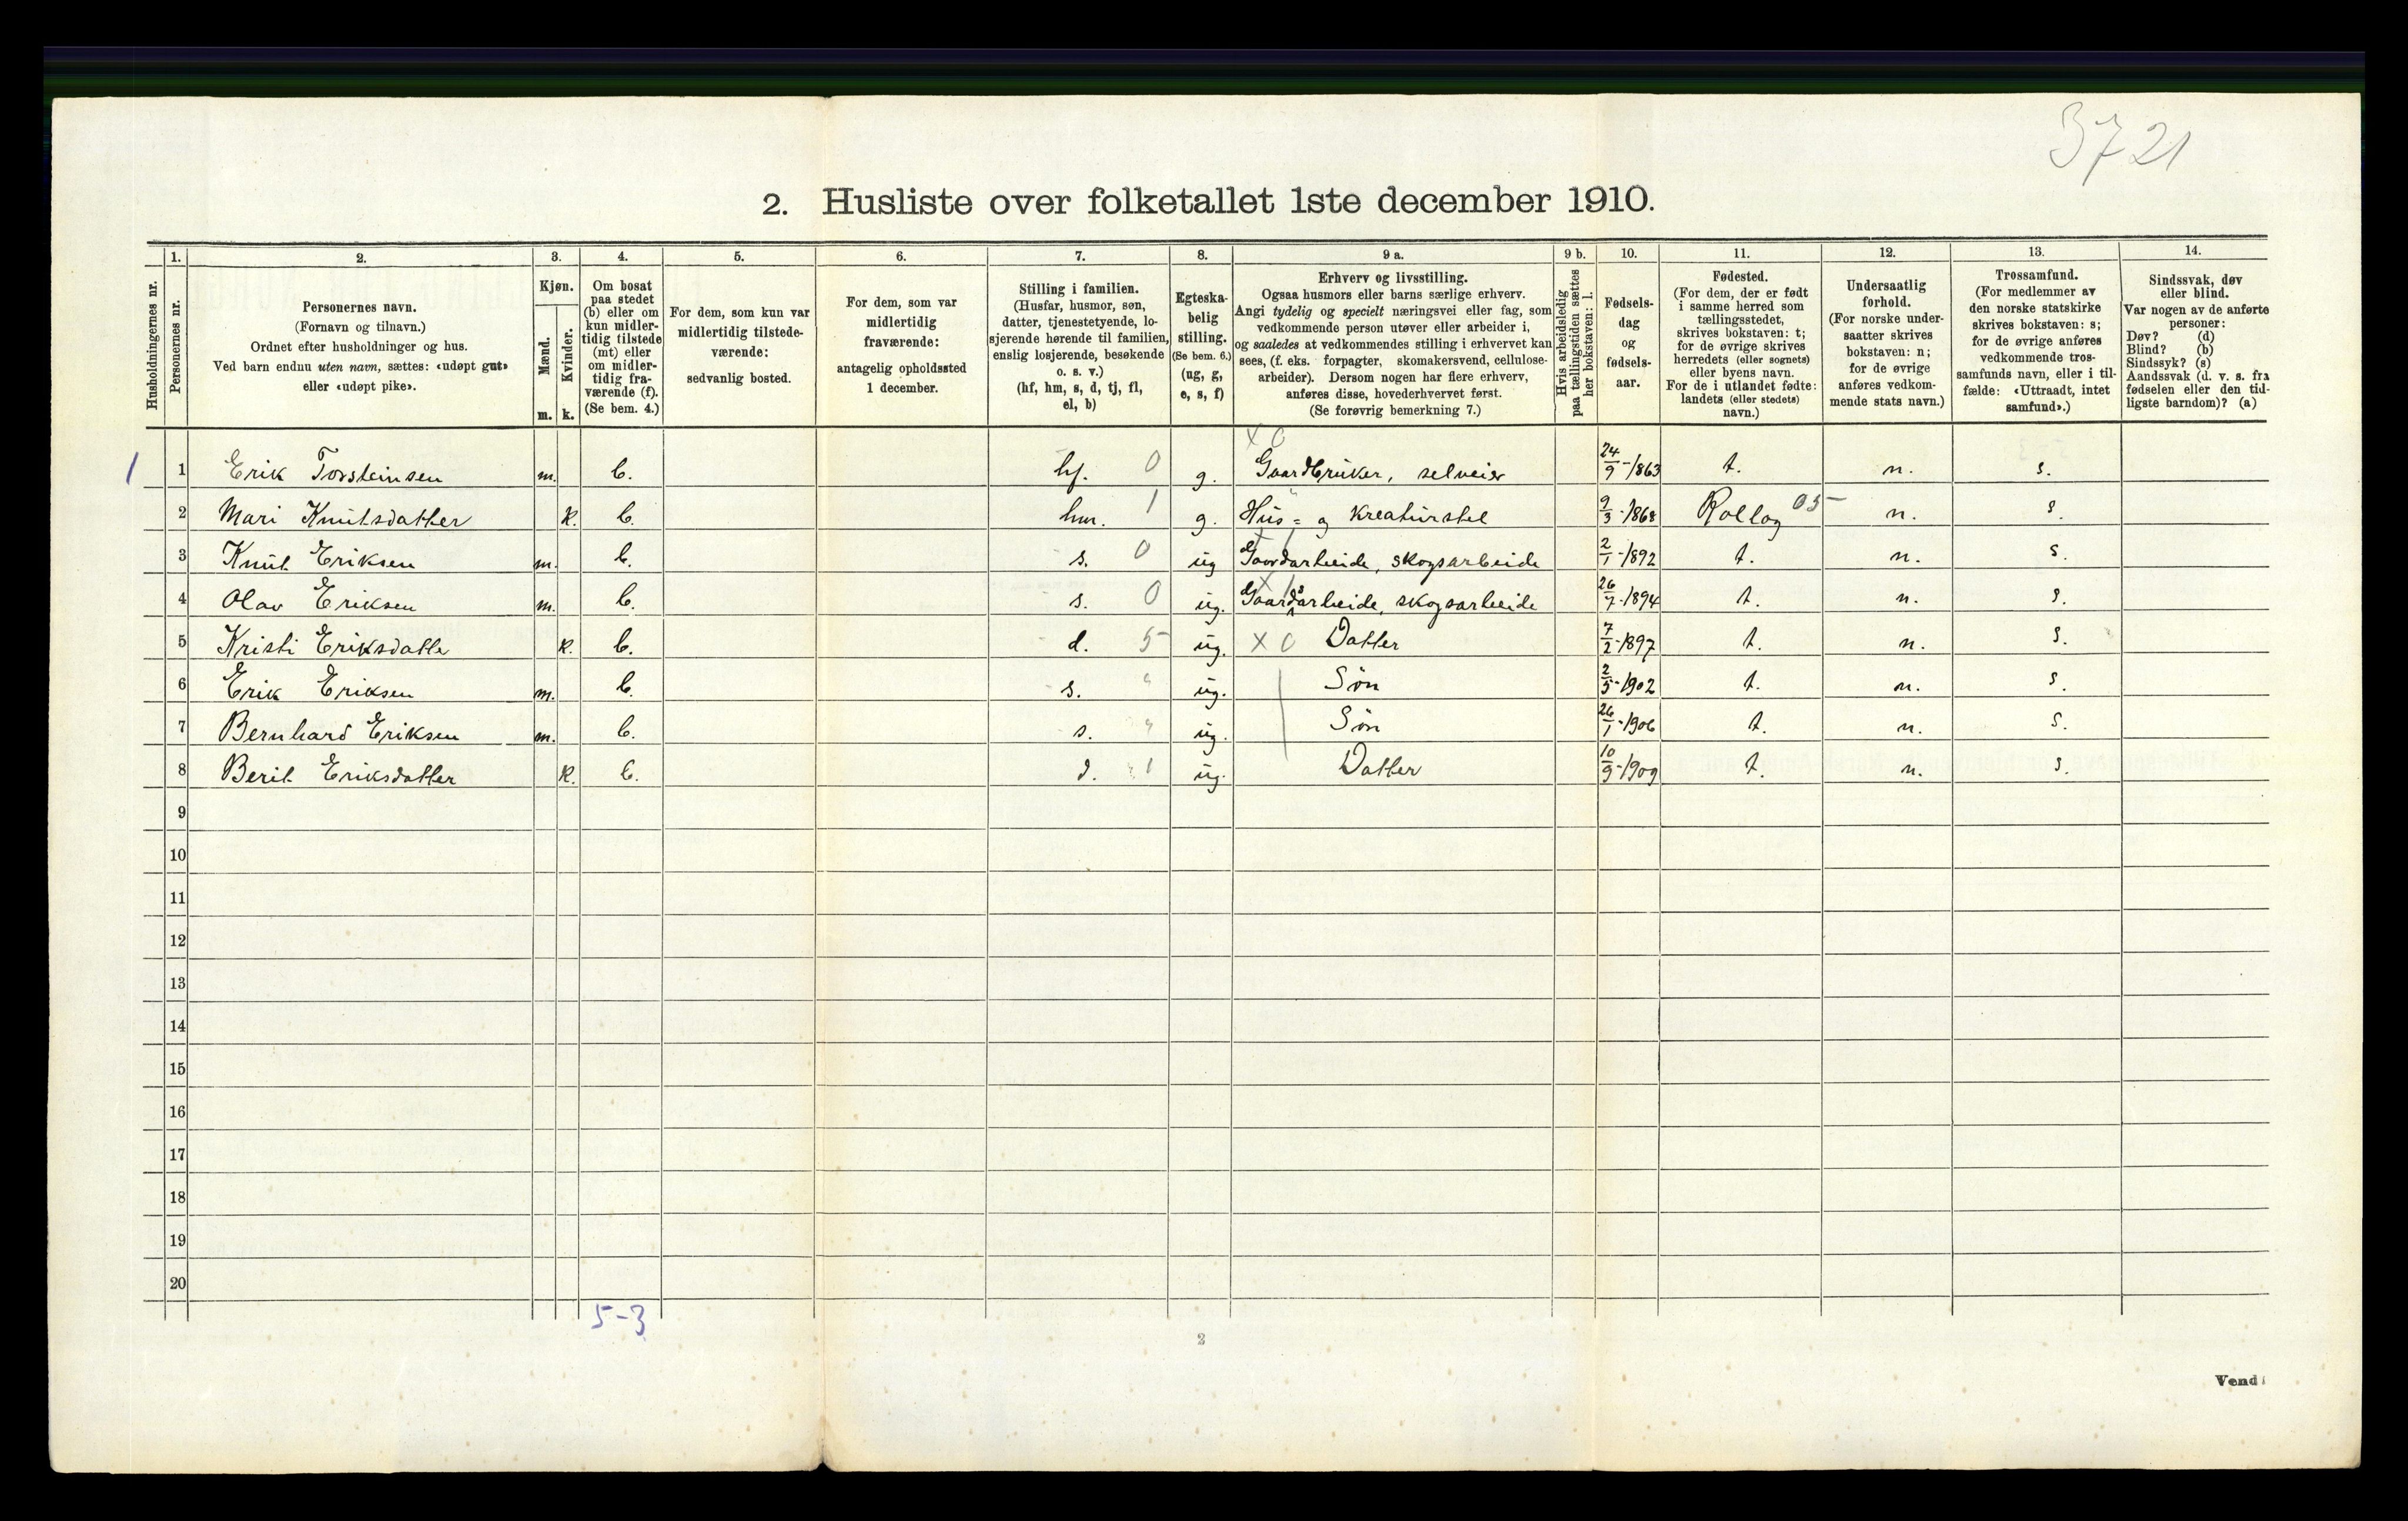 3721
2. Husliste over folketallet 1ste december 1910.
Husholdningernes nr.
1. Personernes nr.
2. Personernes navn.
(Fornavn og tilnavn.)
Ordnet efter husholdninger og hus.
Ved barn endnu uten navn, sættes: «udøpt gut»
eller «udøpt pike».
3. Kjøn.
Mænd. m.
Kvinder. k.
4. Om bosat
paa stedet
(b) eller om
kun midler-
tidig tilstede
(mt) eller
om midler-
tidig fra-
værende (f).
(Se bem. 4.)
5. For dem, som kun var
midlertidig tilstede-
værende:
sedvanlig bosted.
6. For dem, som var
midlertidig
fraværende:
antagelig opholdssted
1 december.
7. Stilling i familien.
(Husfar, husmor, søn,
datter, tjenestetyende, lo-
sjerende hørende til familien,
enslig losjerende, besøkende
o. s. v.)
(hf, hm, s, d, tj, fl,
el, b)
8. Egteska-
belig
stilling.
(Se bem. 6.)
(ug, g,
e, s, f)
9 a. Erhverv og livsstilling.
Ogsaa husmors eller barns særlige erhverv.
Angi tydelig og specielt næringsvei eller fag, som
vedkommende person utøver eller arbeider i,
og saaledes at vedkommendes stilling i erhvervet kan
sees, (f. eks. forpagter, skomakersvend, cellulose-
arbeider). Dersom nogen har flere erhverv,
anføres disse, hovederhvervet først.
(Se forøvrig bemerkning 7.)
9 b. Hvis arbeidsledig
paa tællingstiden sættes
her bokstaven: l.
10. Fødsels-
dag
og
fødsels-
aar.
11. Fødested.
(For dem, der er født
i samme herred som
tællingsstedet,
skrives bokstaven: t;
for de øvrige skrives
herredets (eller sognets)
eller byens navn.
For de i utlandet fødte:
landets (eller stedets)
navn.)
12. Undersaatlig
forhold.
(For norske under-
saatter skrives
bokstaven: n;
for de øvrige
anføres vedkom-
mende stats navn.)
13. Trossamfund.
(For medlemmer av
den norske statskirke
skrives bokstaven: s;
for de øvrige anføres
vedkommende tros-
samfunds navn, eller i til-
fælde: «Uttraadt, intet
samfund».)
14. Sindssvak, døv
eller blind.
Var nogen av de anførte
personer:
Døv? (d)
Blind? (b)
Sindssyk? (s)
Aandssvak (d. v. s. fra
fødselen eller den tid-
ligste barndom)? (a)
1 1 Erik Torsteinsen m. b. hf. 0 g. x 0 Gaardbruker, selveier 24/9-1863 t. n. s.
2 Mari Knutsdatter k. b. hm. 1 g. Hus= og kreaturstel 9/3-1868 Rollag 05 n. s.
3 Knut Eriksen m. b. s. 0 ug Gaardarbeide, skogsarbeide 2/1-1892 t. n. s.
4 Olav Eriksen m. b. s. 0 ug. Gaardsarbeide, skogsarbeide 26/7-1894 t. n. s.
5 Kristi Eriksdatte k. b. d. 5 ug. x 0 Datter 7/2-1897 t. n. s.
6 Erik Eriksen m. b. s. ug. Søn 2/5-1902 t. n. s.
7 Bernhard Eriksen m. b. s. ug. Søn 26/1-1906 t. n. s.
8 Berit Eriksdatter k. b. d. 1 ug. Datter 10/9-1909 t. n. s.
9
10
11
12
13
14
15
16
17
18
19
20
5-3
2
Vend!